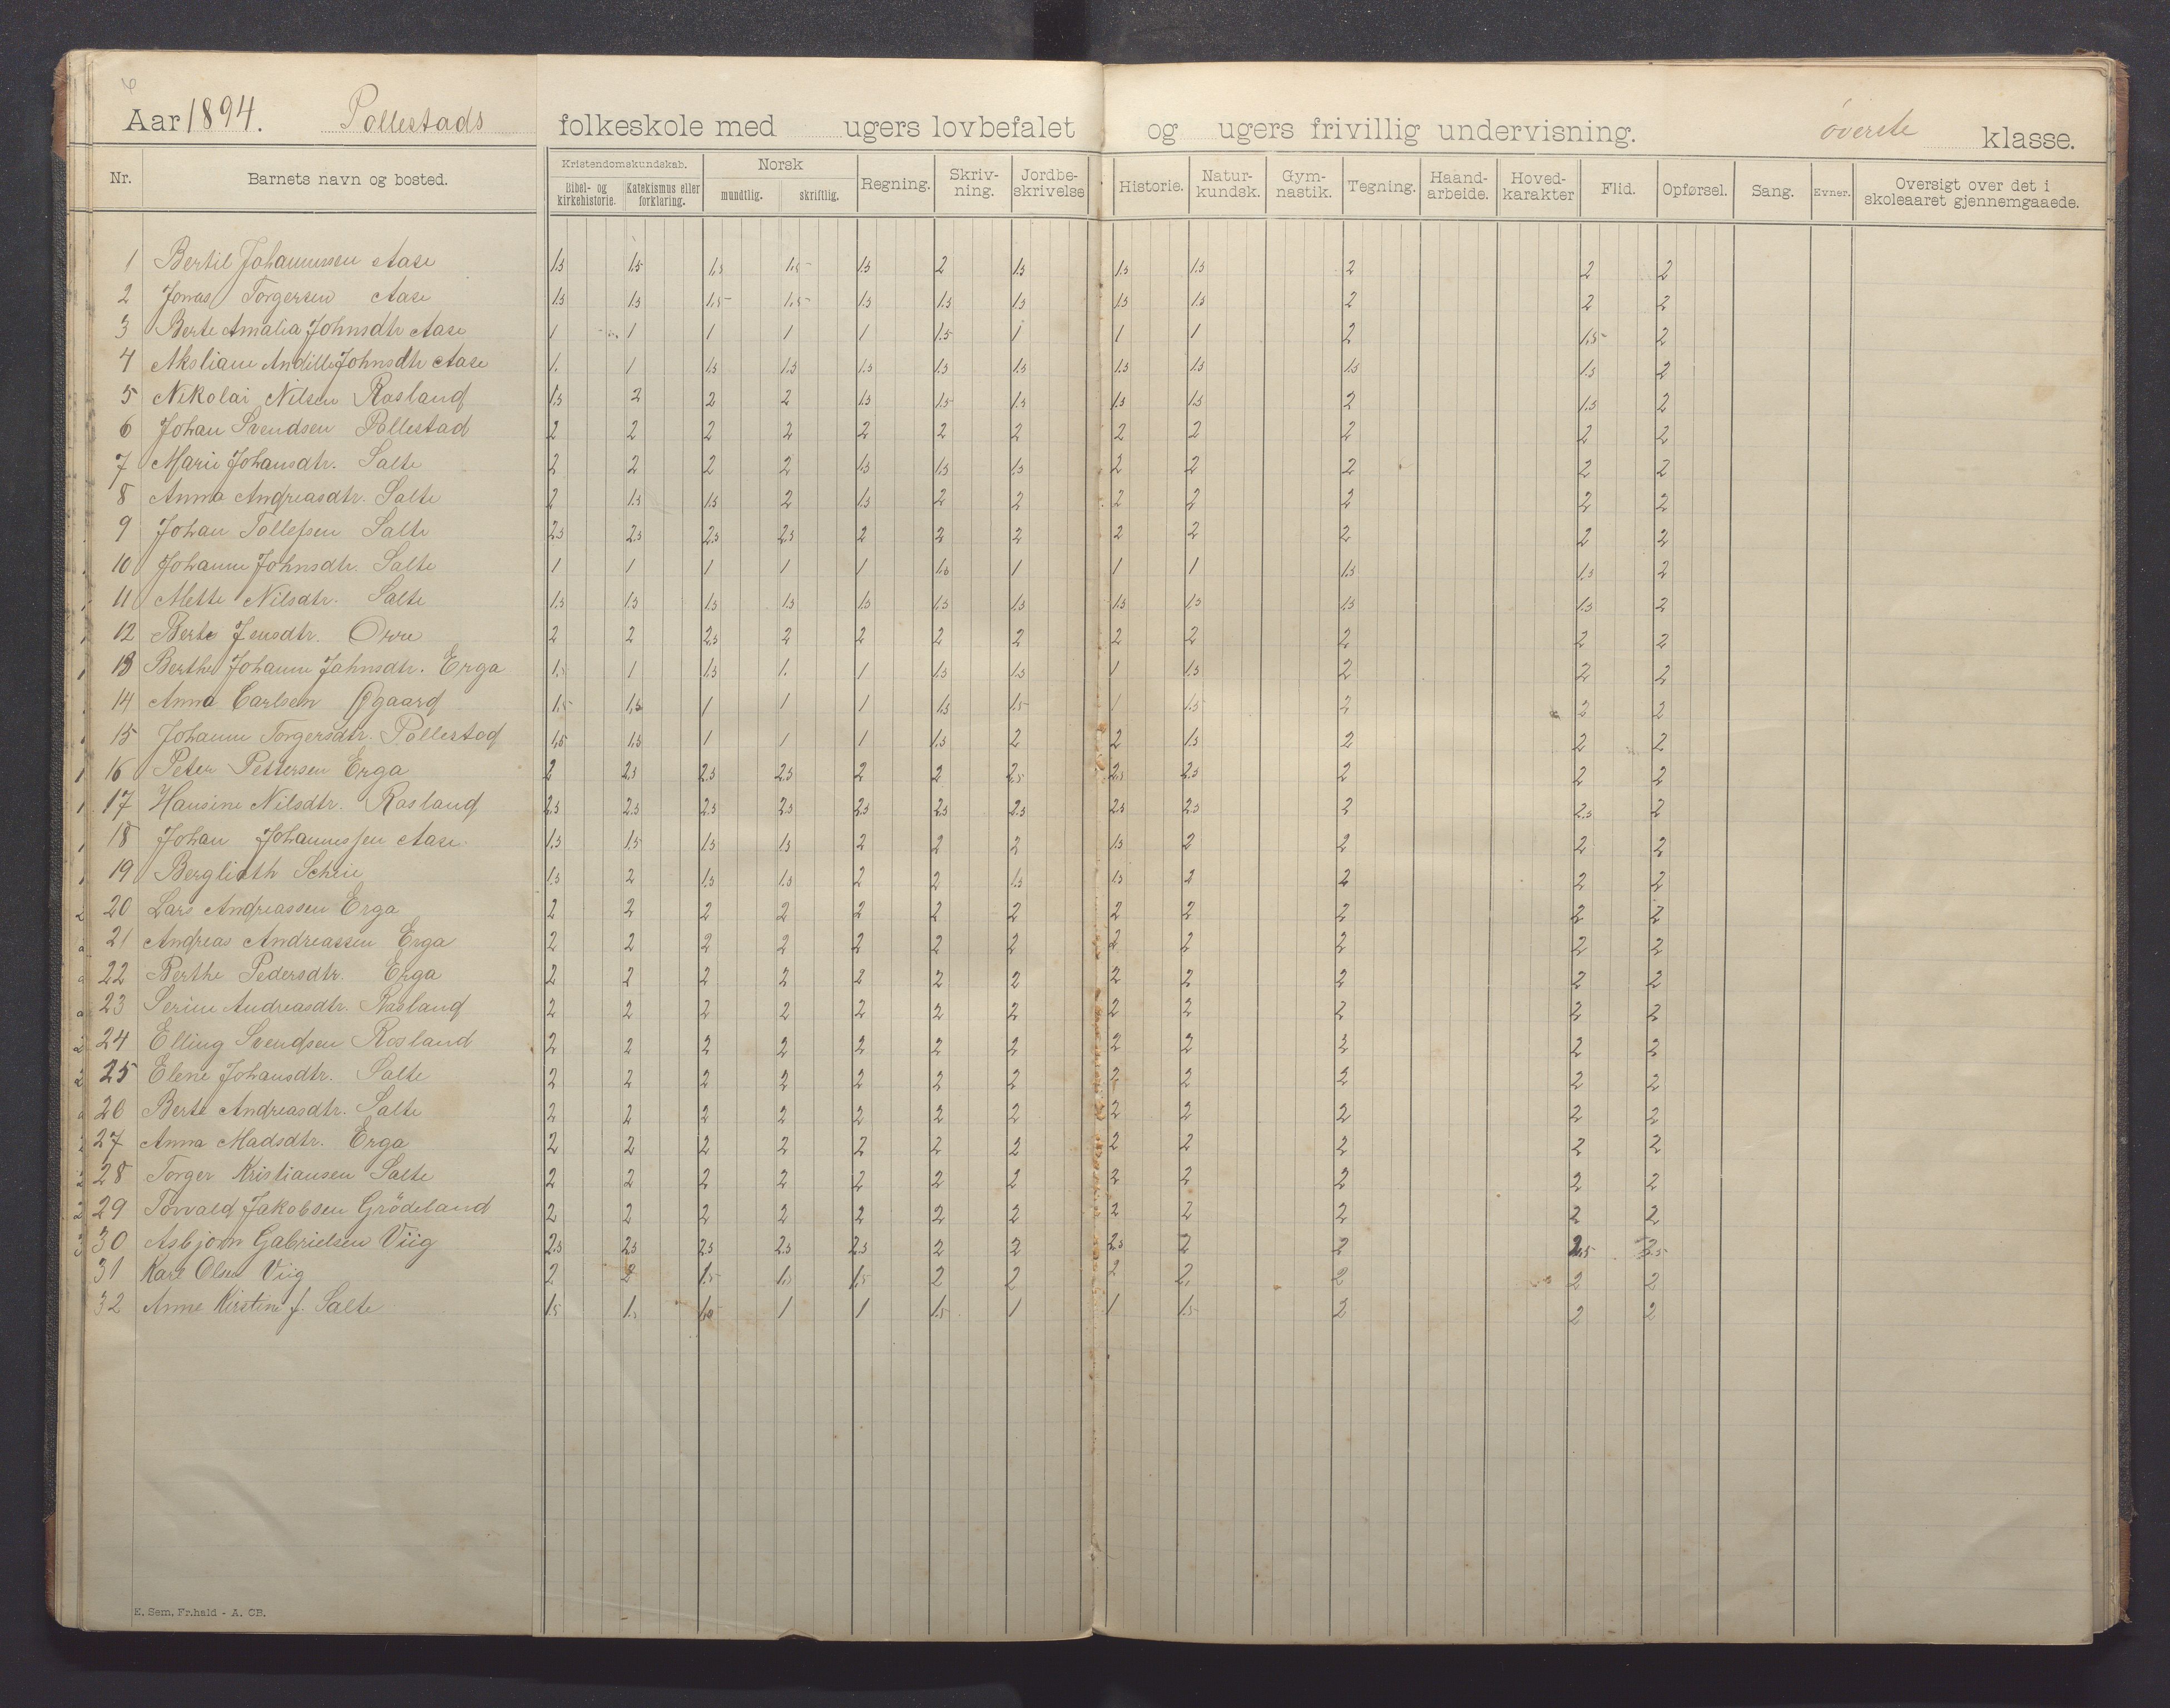 Aar 1894. Pollestads folkeskole med ugers lovbefalet og ugers frivillig undervisning. øverste klasse.
Nr. Barnets navn og bosted. Kristendomskundskab. Bibel- og kirkehistorie. Katekismus eller forklaring. Norsk mundtlig. skriftlig. Regning. Skriv-ning. Jordbe-skrivelse Historie. Natur-kundsk. Gym-nastik. Tegning. Haand-arbeide. Hoved-karakter Flid. Opførsel. Sang. Evner. Oversigt over det i skoleaaret gjennemgaaede.
1 Bertil Johannessen Aase 1.5 1.5 1.5 1.5 1.5 2 1.5 1.5 1.5 2 2 2
2 Jonas Torgersen Aase 1.5 1.5 1.5 1.5 1.5 1.5 1.5 1.5 1.5 2 2 2
3 Berte Amalia Johnsdtr Aase 1 1 1 1 1 1.5 1 1 1 2 1.5 2
4 Johnsdtr Aase 1. 1 1.5 1.5 1.5 1.5 1.5 1.5 1.5 1.5 1.5 2
5 Nikolai Nilsen Rosland 1.5 2 2 2 1.5 1.5 1.5 1.5 1.5 2 1.5 2
6 Johan Svendsen Pollestad 2 2 2 2 2 2 2 2 2 2 2 2
7 Marie Johansdtr. Salte 2 2 2 2 1.5 1.5 1.5 2 2 2 2 2
8 Anna Andreasdtr. Salte 2 1.5 1.5 2 1.5 2 2 2 2 2 2 2
9 Johan Tollefsen Salte 2.5 2.5 2.5 2.5 2 2 2 2 2 2 2 2
10 Johanne Johnsdtr. Salte 1 1 1 1 1 1.5 1 1 1 1.5 1.5 2
11 Mette Nilsdtr. Salte 1.5 1.5 1.5 1.5 1.5 1.5 1.5 1.5 1.5 1.5 1.5 2
12 Berte Jensdtr. Orre 2 2 2.5 2 2 2 2 2 2 2 2 2
13 Berthe Johanne Jahnsdtr. Erga 1.5 1 1.5 1. 1 1.5 1.5 1 1.5 2 2 2
14 Anna Carlsen 1.5 1.5 1 1 1 1.5 1.5 1 1.5 2 2 2
15 Johanne Torgersdtr. Pollestad 1.5 1.5 1 1 1 1.5 2 2 1.5 2 2 2
16 Peter Pettersen Erga 2 2.5 2.5 2.5 2 2 2.5 2.5 2.5 2 2 2
17 Hansine Nilsdtr. Rasland 2.5 2.5 2.5 2.5 2.5 2.5 2.5 2.5 2.5 2 2.5 2
18 Johan Johannessen Aase 1.5 1.5 1.5 1.5 2 2 2 1.5 2 2 2 2
19 Bergliath 1.5 2 1.5 1.5 2 2 1.5 1.5 2 2 2 2
20 Lars Andreassen Erga 2 2 2 2 2 2 2 2 2 2 2 2
21 Andreas Andreassen Erga 2 2 2 2 2 2 2 2 2 2 2 2
22 Berthe Pedersdtr. Erga 2 2 2 2 2 2 2 2 2 2 2 2
23 Serine Andreasdtr. Rasland 2 2 2 2 2 2 2 2 2 2 2 2
24 Elling Svendsen Rosland 2 2 2 2 2 2 2 2 2 2 2 2
25 Elene Johansdtr. Salte 2 2 2 2 2 2 2 2 2 2 2 2
26 Berte Andreasdtr. Salte 2 2 2 2 2 2 2 2 2 2 2 2
27 Anna Madsdtr. Erga 2 2 2 2 2 2 2 2 2 2 2 2
28 Torger Kristiansen Salte 2 2 2 2 2 2 2 2 2 2 2 2
29 Torvald Jakobsen Grödeland 2 2 2 2 2 2 2 2 2 2 2 2
30 Asbjorn Gabrielsen Viig 2.5 2.5 2.5 2.5 2.5 2 2 2.5 2 2 2.5 2.5
31 Karl Olsen Viig 2 2 1.5 1.5 1.5 2 2 2 2. 2 2 2
32 Anne Kirstine J. Salte 1.5 1.5 1.5 1 1 1.5 1 1 1.5 2 2 2
E. Sem, Fr.hald - A. CB.